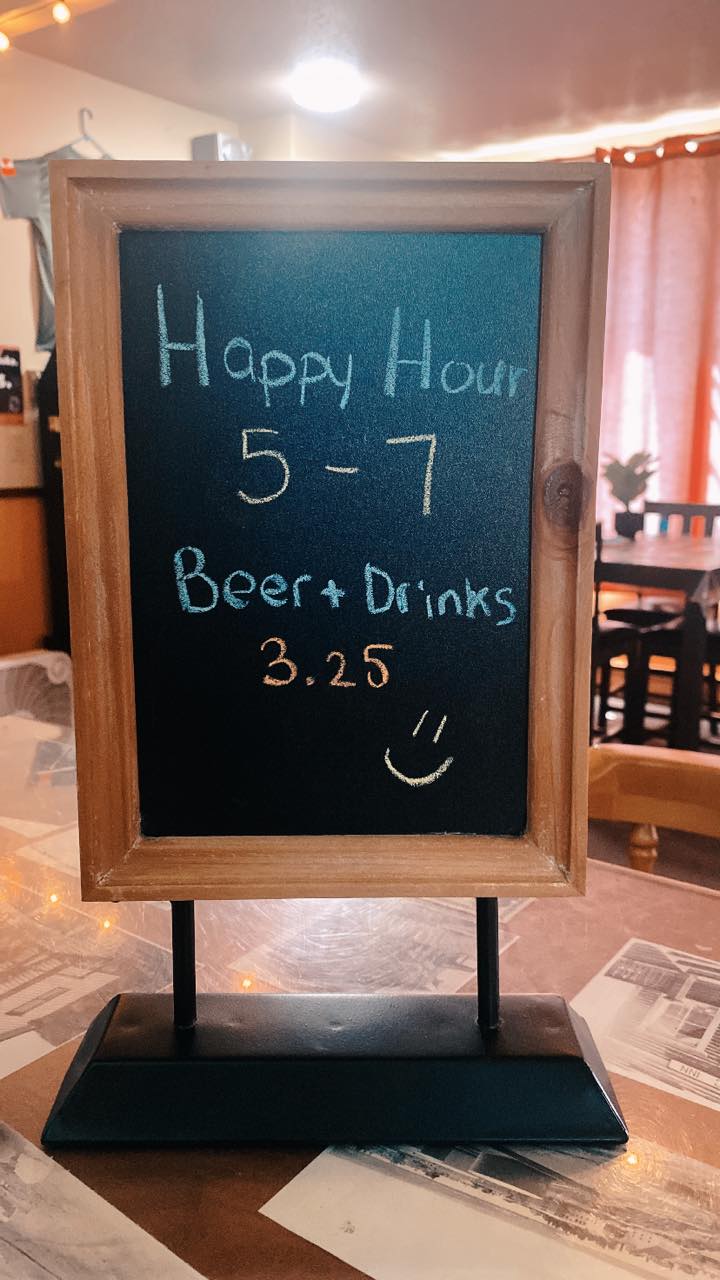 Happy Hour
5 - 7
Beer + Drinks
3.25
INN